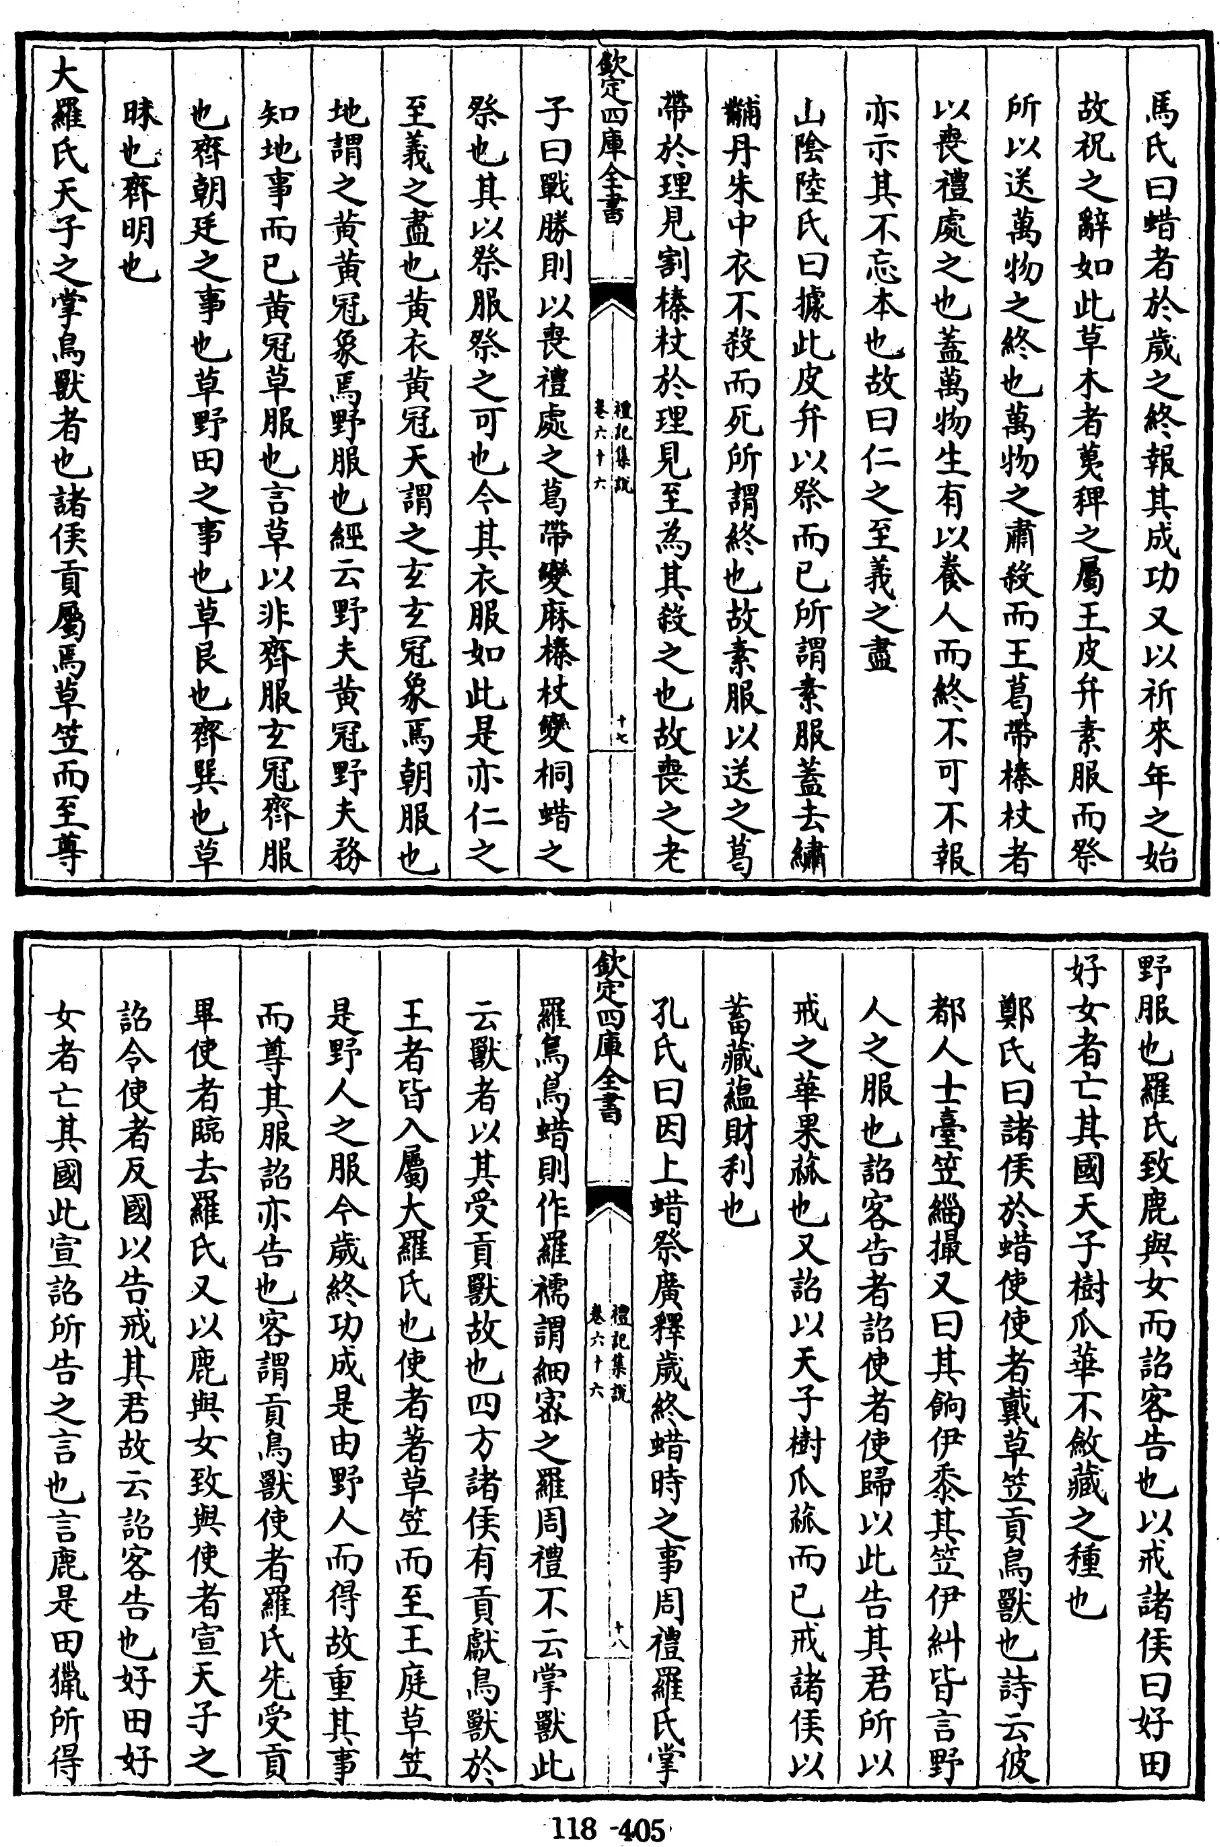 馬氏曰蜡者於歲之終報其成功又以祈來年之始
故祝之辭如此草木者荑稗之屬王皮弁素服而祭
所以送萬物之終也萬物之肅殺而王葛帶榛杖者
以喪禮處之也蓋萬物生有以養人而終不可不報
亦示其不忘本也故曰仁之至義之盡
山陰陸氏曰據此皮弁以祭而已所謂素服蓋去繡
黼丹朱中衣不殺而死所謂終也故素服以送之葛
帶於理見割榛杖於理見至為其殺之也故喪之老
欽定四庫全書
禮記集說
卷六十六
十七
子曰戰勝則以喪禮處之葛帶變麻榛杖變桐蜡之
祭也其以祭服祭之可也今其衣服如此是亦仁之
至義之盡也黃衣黃冠天謂之玄玄冠象焉朝服也
地謂之黃黃冠象焉野服也經云野夫黃冠野夫務
知地事而已黃冠草服也言草以非齊服玄冠齊服
也齊朝廷之事也草野田之事也草艮也齊巽也草
昧也齊明也
大羅氏天子之掌鳥獸者也諸侯貢屬焉草笠而至尊
野服也羅氏致鹿與女而詔客告也以戒諸侯曰好田
好女者亡其國天子樹瓜華不斂藏之種也
鄭氏曰諸侯於蜡使使者戴草笠貢鳥獸也詩云彼
都人士臺笠緇撮又曰其餉伊黍其笠伊糾皆言野
人之服也詔客告者詔使者使歸以此告其君所以
戒之華果蓏也又詔以天子樹瓜蓏而已戒諸侯以
蓄藏蘊財利也
孔氏曰因上蜡祭廣釋歲終蜡時之事周禮羅氏掌
欽定四庫全書
禮記集說
卷六十六
十八
羅烏鳥蜡則作羅襦謂細密之羅周禮不云掌獸此
云獸者以其受貢獸故也四方諸侯有貢獻鳥獸於
王者皆入屬大羅氏也使者著草笠而至王庭草笠
是野人之服今歲終功成是由野人而得故重其事
而尊其服詔亦告也客謂貢鳥獸使者羅氏先受貢
畢使者臨去羅氏又以鹿與女致與使者宣天子之
詔令使者反國以告戒其君故云詔客告也好田好
女者亡其國此宣詔所告之言也言鹿是田獵所得
118-405